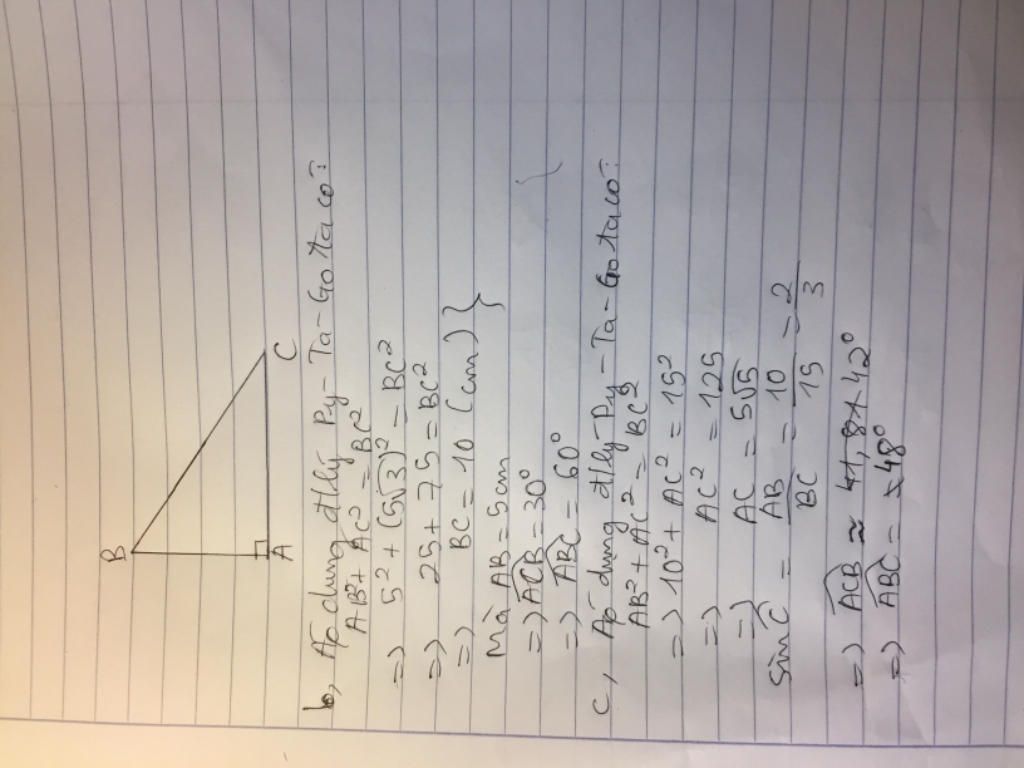 B
A
C
b, Áp dụng đlý Py-Ta-Go ta có:
AB² + AC² = BC²
=> 5² + (5√3)² = BC²
=> 25 + 75 = BC²
=> BC = 10 (cm) }
Mà AB = 5cm
=> ACB = 30°
=> ABC = 60°
c, Áp dụng đlý Py-Ta-Go ta có:
AB² + AC² = BC²
=> 10² + AC² = 15²
=> AC² = 125
=> AC = 5√5
Sin C = AB/BC = 10/15 = 2/3
=> ACB ≈ 42°
=> ABC = 48°